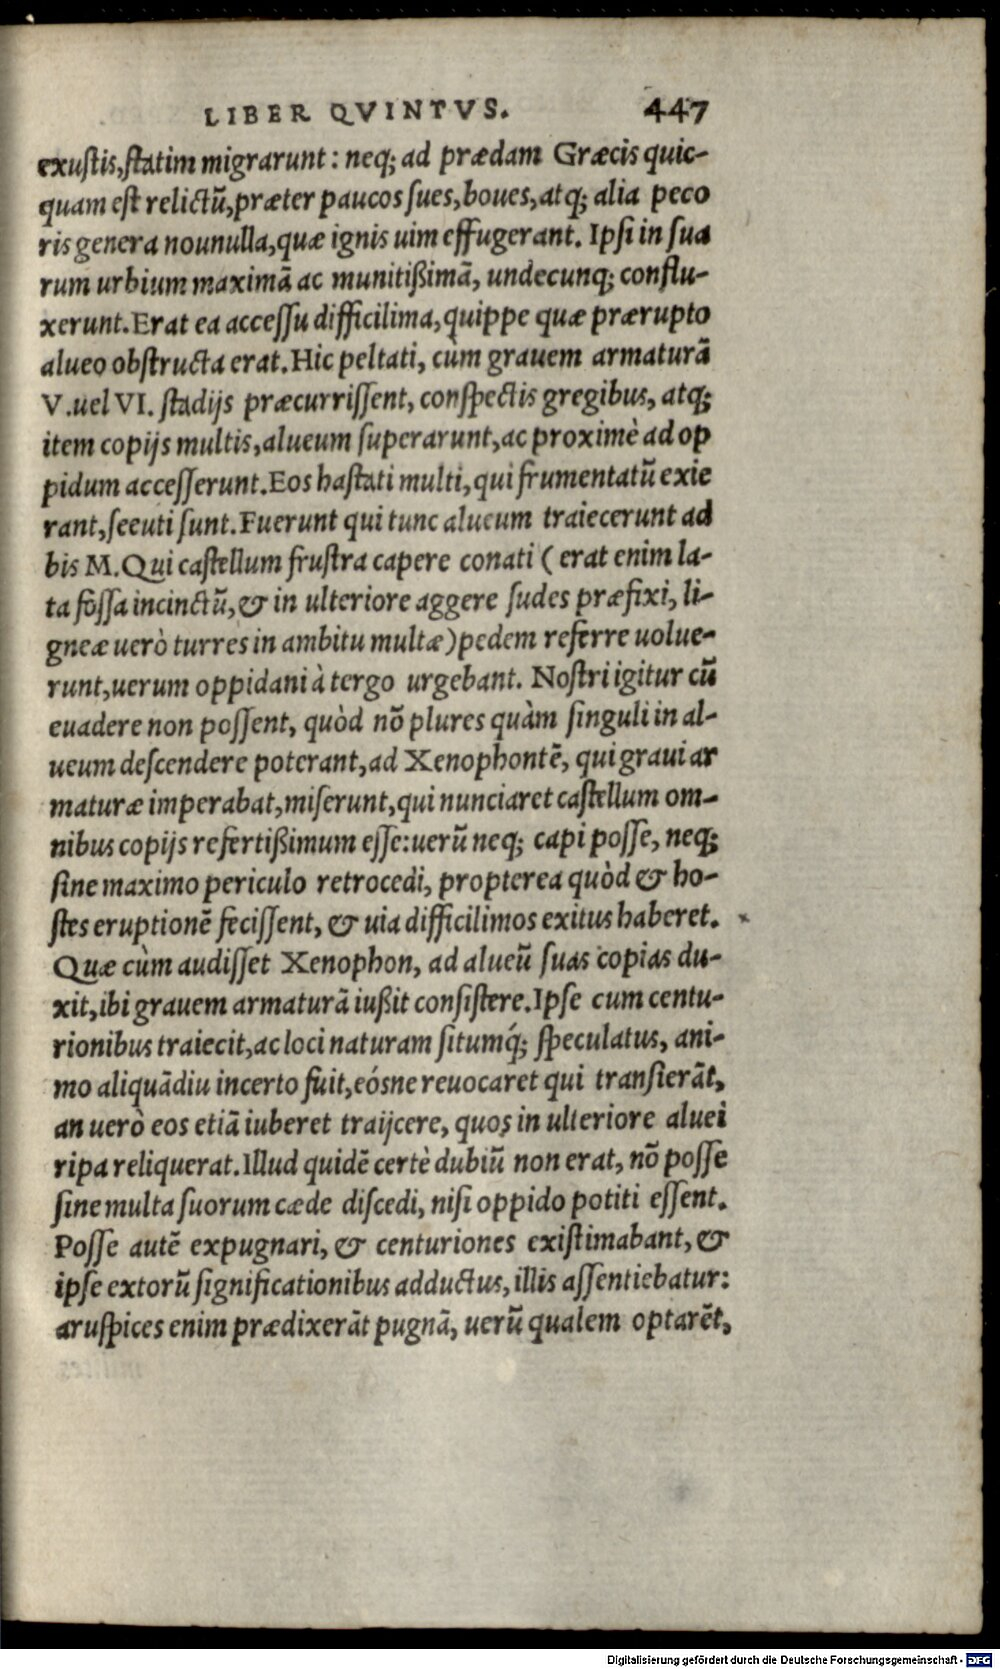 LIBER QVINTVS. 447
exustis, statim migrarunt: neq; ad prædam Græcis quic-
quam est relictũ, præter paucos sues, boues, atq; alia peco
ris genera nounulla, quæ ignis uim effugerant. Ipsi in sua
rum urbium maximã ac munitißimã, undecunq; conflu-
xerunt. Erat ea accessu difficilima, quippe quæ prærupto
alueo obstructa erat. Hic peltati, cùm grauem armaturã
V. uel VI. stadijs præcurrissent, conspectis gregibus, atq;
item copijs multis, alueum superarunt, ac proximè ad op
pidum accesserunt. Eos hastati multi, qui frumentatũ exie
rant, seeuti sunt. Fuerunt qui tunc alueum traiecerunt ad
bis M. Qui castellum frustra capere conati (erat enim la-
ta fossa incinctũ, & in ulteriore aggere sudes præfixi, li-
gneæ uerò turres in ambitu multæ) pedem referre uolue-
runt, uerum oppidani à tergo urgebant. Nostri igitur cũ
euadere non possent, quòd nõ plures quàm singuli in al-
ueum descendere poterant, ad Xenophontẽ, qui graui ar
maturæ imperabat, miserunt, qui nunciaret castellum om-
nibus copijs refertißimum esse: uerũ neq; capi posse, neq;
sine maximo periculo retrocedi, propterea quòd & ho-
stes eruptionẽ fecissent, & uia difficilimos exitus haberet.
Quæ cùm audisset Xenophon, ad alueũ suas copias du-
xit, ibi grauem armaturã iußit consistere. Ipse cum centu-
rionibus traiecit, ac loci naturam situmq́; speculatus, ani-
mo aliquãdiu incerto fuit, eósne reuocaret qui transierãt,
an uerò eos etiã iuberet traijcere, quos in ulteriore aluei
ripa reliquerat. Illud quidẽ certè dubiũ non erat, nõ posse
sine multa suorum cæde discedi, nisi oppido potiti essent.
Posse autẽ expugnari, & centuriones existimabant, &
ipse extorũ significationibus adductus, illis assentiebatur:
aruspices enim prædixerãt pugnã, uerũ qualem optarẽt,
Digitalisierung gefördert durch die Deutsche Forschungsgemeinschaft - DFG